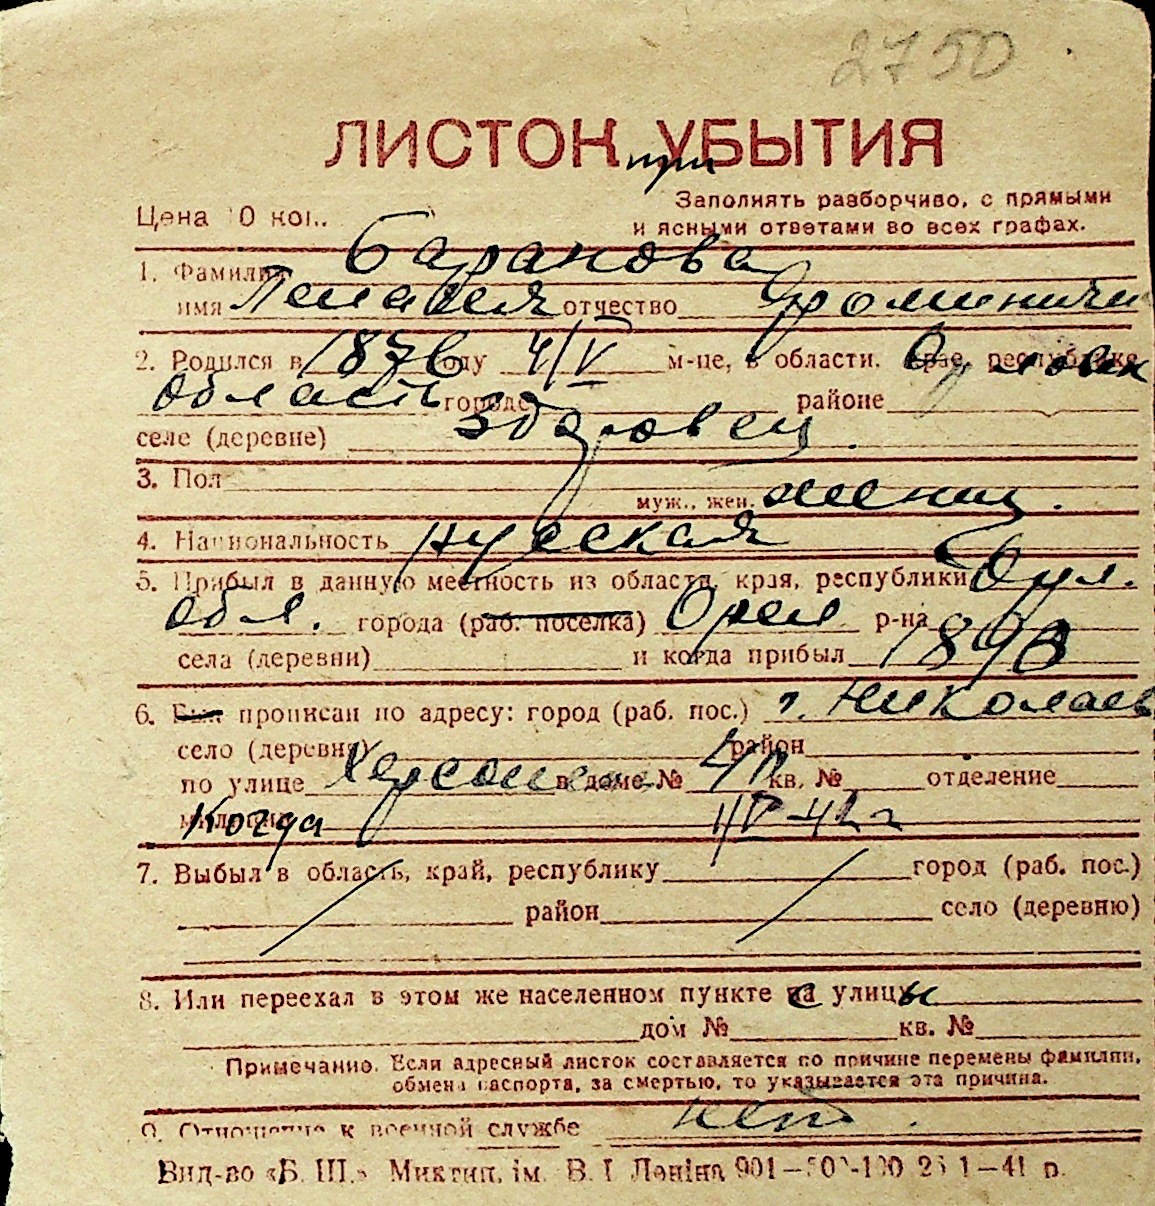 2750
ЛИСТОК при УБЫТИЯ
Цена 10 коп.
Заполнять разборчиво, с прямыми
и ясными ответами во всех графах.
1. Фамилия Баранова
имя Пелагея отчество
2. Родился в 1876 году 4/V м-це, в области, крае, республике
область городе районе
селе (деревне) Здоровец.
3. Пол муж., жен. женщ.
4. Национальность русская
5. Прибыл в данную местность из области, края, республики
обл. города (раб. поселка) Орел р-на
села (деревни) и когда прибыл 1898
6. Был прописан по адресу: город (раб. пос.) г. Николаев
село (деревня) район
по улице Херсонск в доме № кв. № отделение
милиции Когда
7. Выбыл в область, край, республику город (раб. пос.)
район село (деревню)
8. Или переехал в этом же населенном пункте с улицы
дом № кв. №
Примечание. Если адресный листок составляется по причине перемены фамилии,
обмена паспорта, за смертью, то указывается эта причина.
9. Отношение к военной службе нет.
Вид-во «Б. Ш.» Миктип. ім. В. І Леніна 26 1—41 р.